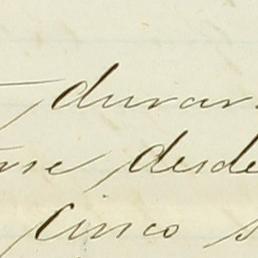 duran
rse desde
cinco s